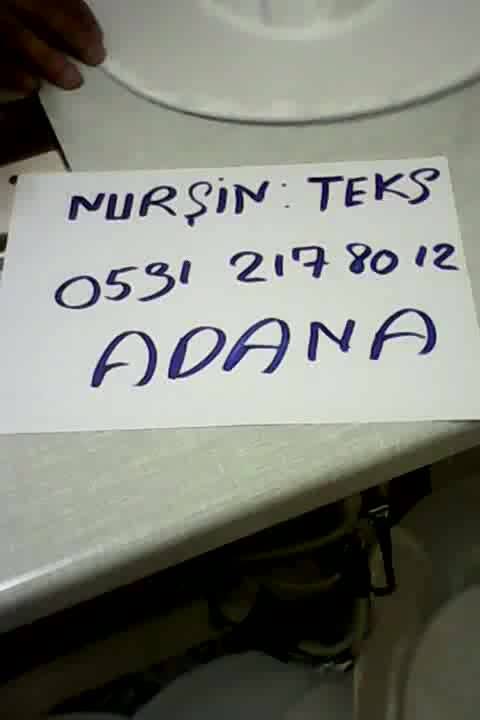 NURŞİN: TEKS
0531 217 80 12
ADANA